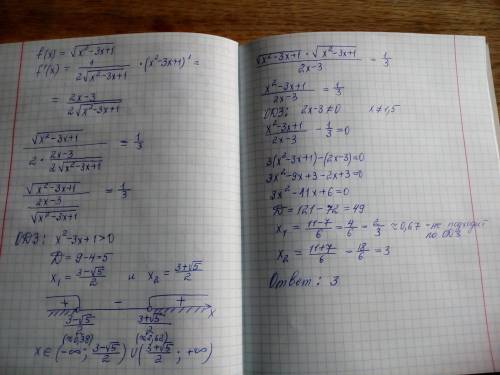 f(x) = √(x²-3x+1)
f'(x) = 1/(2√(x²-3x+1)) · (x²-3x+1)' =
= (2x-3)/(2√(x²-3x+1))
√(x²-3x+1)/(2 · (2x-3)/(2√(x²-3x+1))) = 1/3
√(x²-3x+1)/((2x-3)/√(x²-3x+1)) = 1/3
ОДЗ: x²-3x+1>0
D = 9-4=5
x₁ = (3-√5)/2 и x₂ = (3+√5)/2
+ - +
(3-√5)/2 (3+√5)/2 x
(≈0,38) (≈2,62)
x∈(-∞; (3-√5)/2) ∪ ((3+√5)/2; +∞)
√(x²-3x+1) · √(x²-3x+1)/(2x-3) = 1/3
(x²-3x+1)/(2x-3) = 1/3
ОДЗ: 2x-3≠0 x≠1,5
(x²-3x+1)/(2x-3) - 1/3 =0
3(x²-3x+1)-(2x-3)=0
3x²-9x+3-2x+3=0
3x²-11x+6=0
D = 121-72=49
x₁ = (11-7)/6 = 4/6 = 2/3 ≈0,67 - не подходит
по ОДЗ
x₂ = (11+7)/6 = 18/6 = 3
Ответ: 3